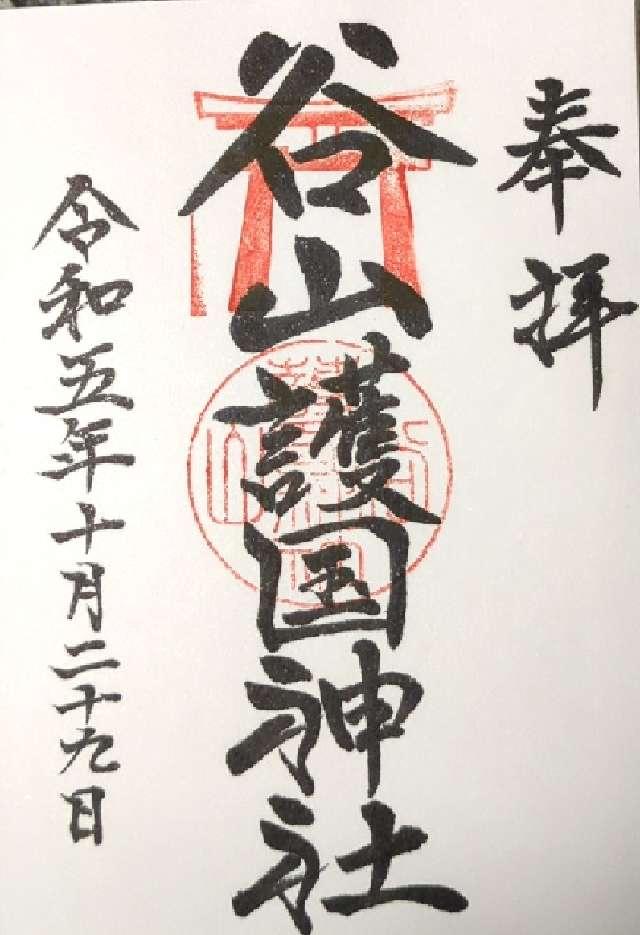 奉拝
谷山護国神社
令和五年十月二十九日